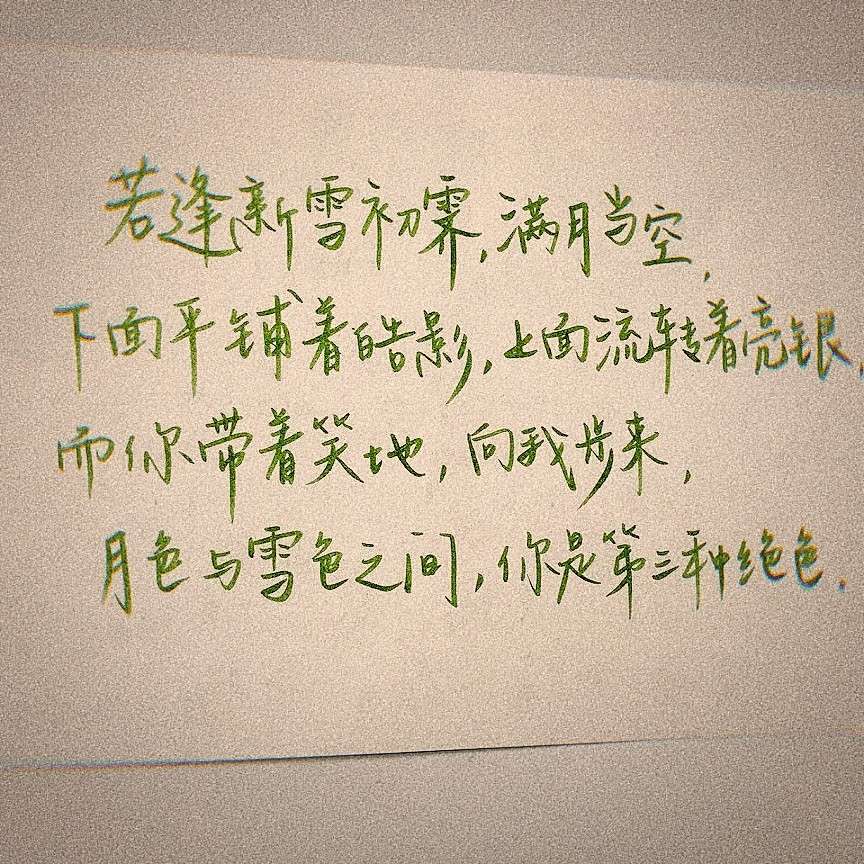 若逢新雪初霁,满月当空,
下面平铺着皓影,上面流转着亮银,
而你带着笑地,向我步来,
月色与雪色之间,你是第三种绝色.